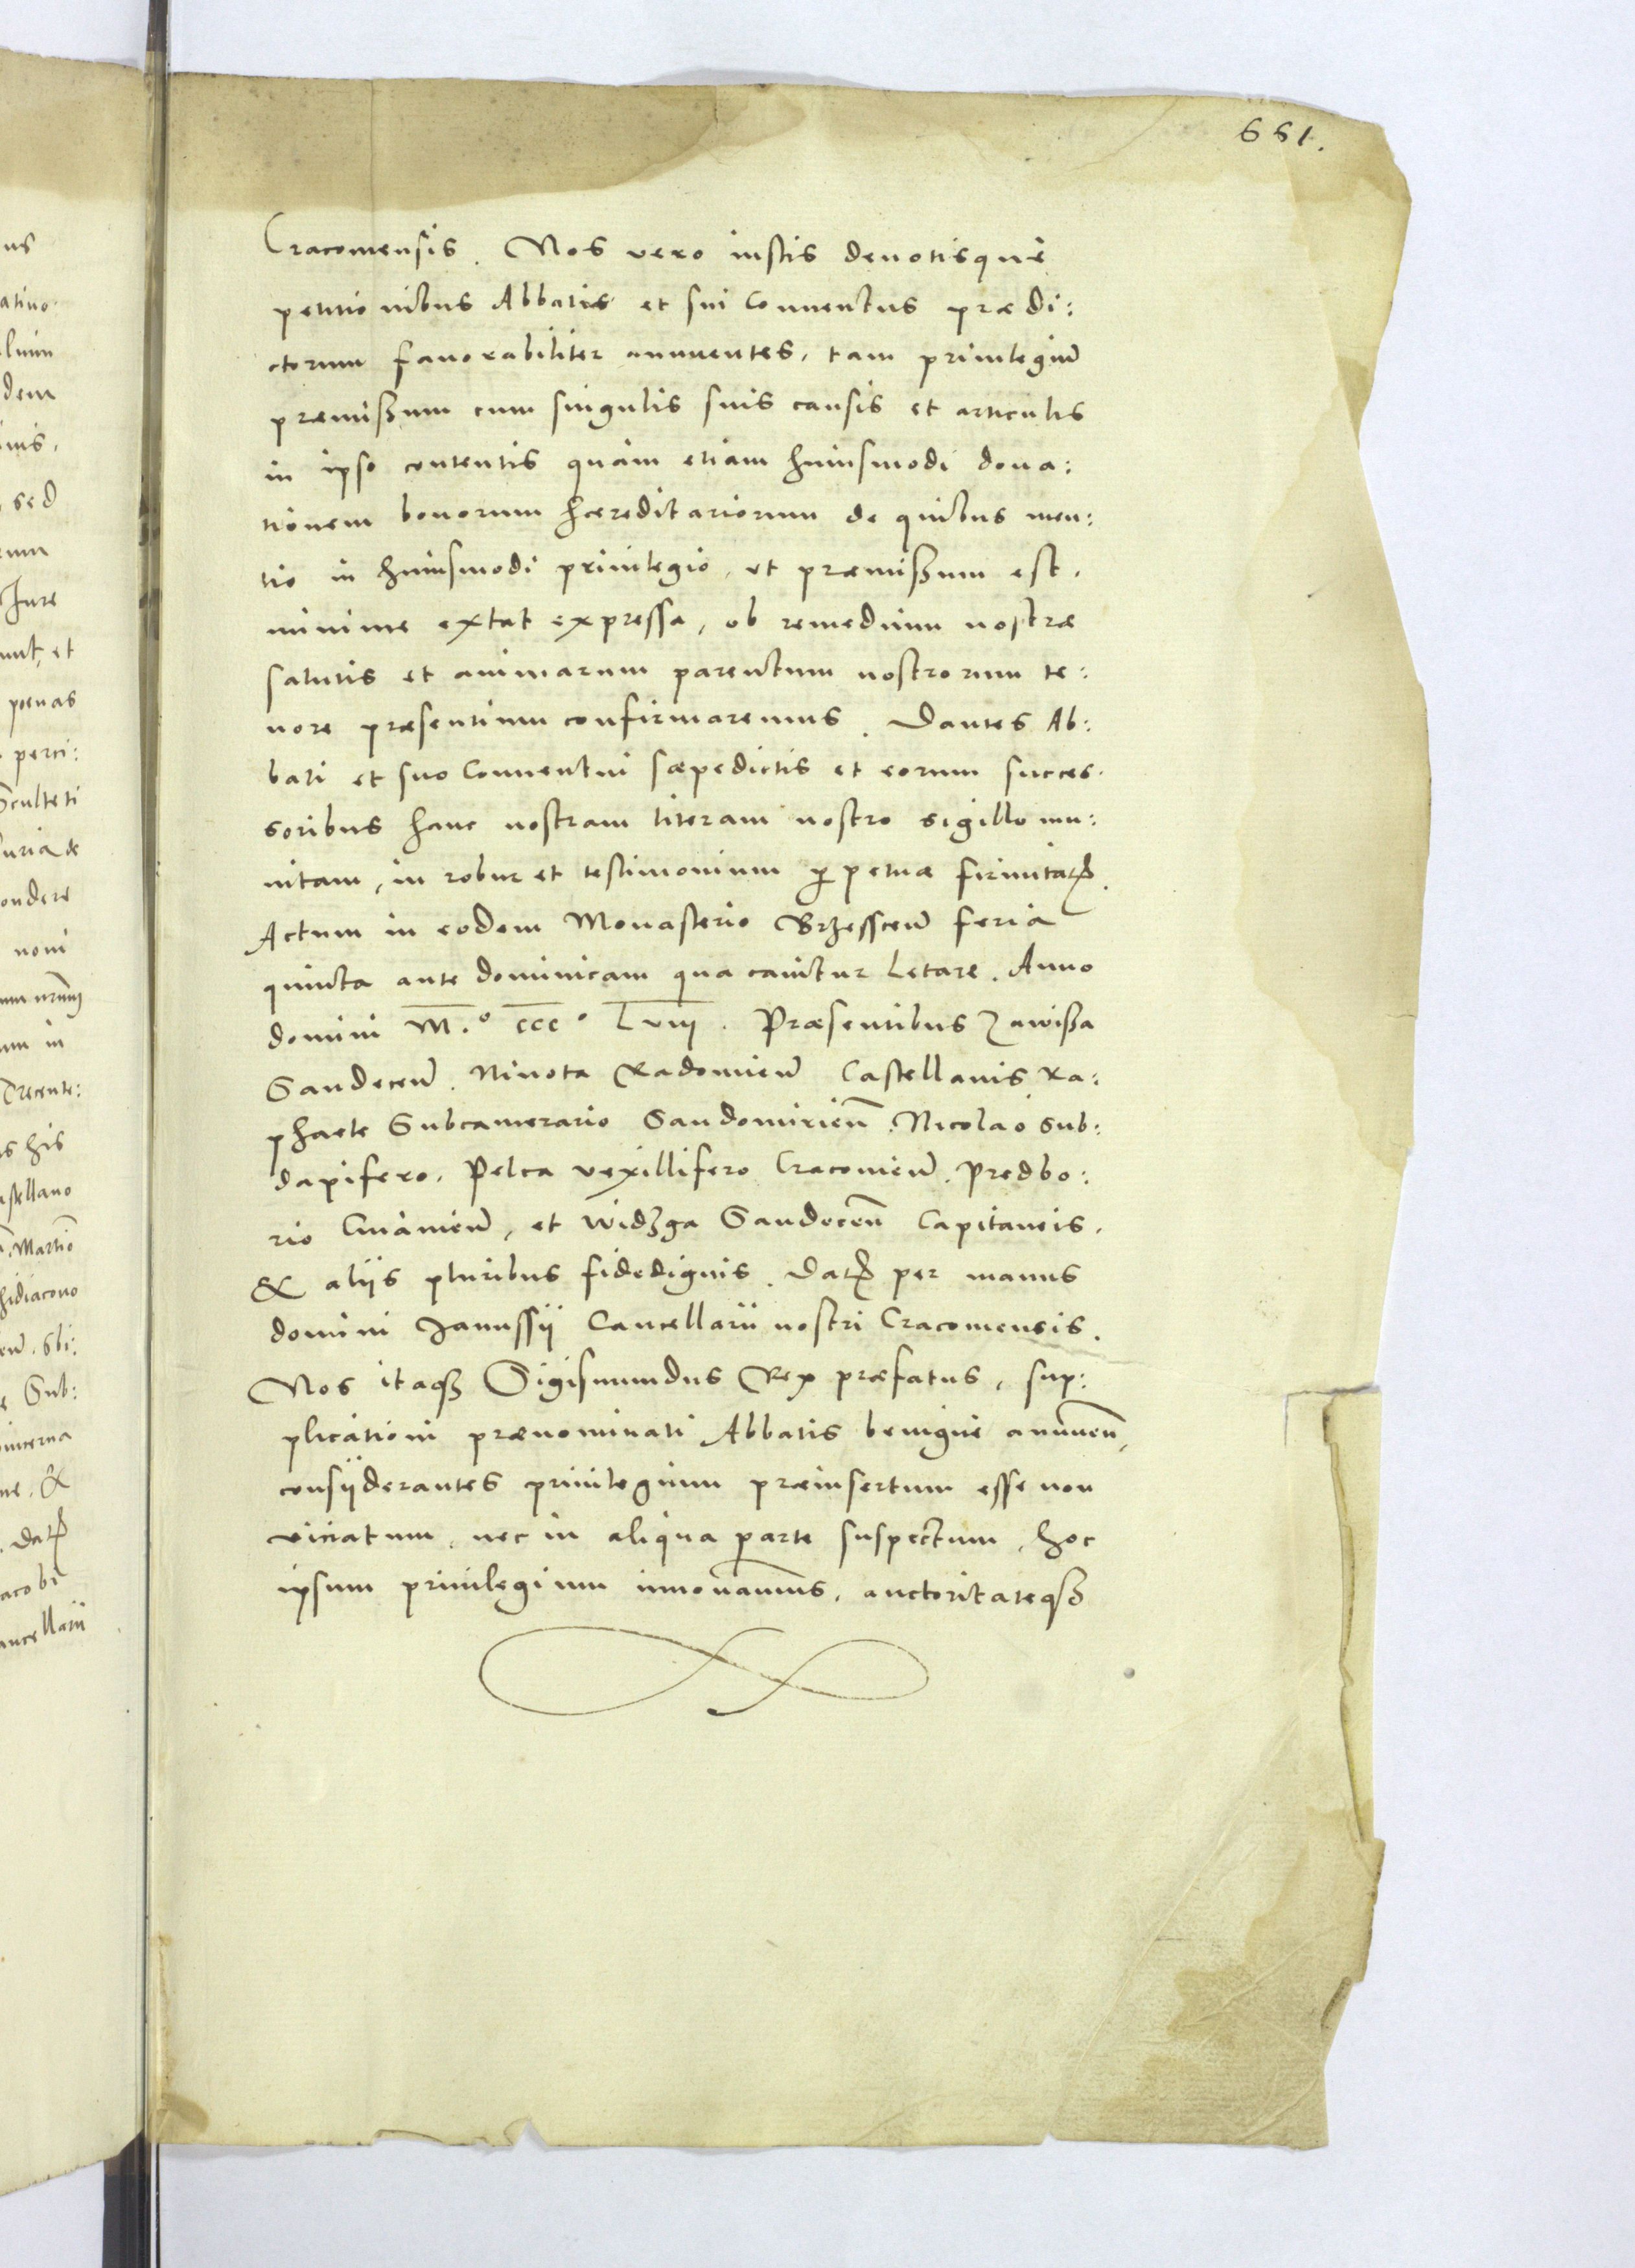 661.
Cracoviensis. Nos vero iustis deuotisque
petitionibus Abbatis et sui Conuentus prædi:
ctorum fauorabiliter annuentes, tam priuilegiū
præmißum cum singulis suis causis et articulis
in ipso contentis quàm etiam huiusmodi dona:
tionem bonorum hæreditariorum de quibus men:
tio in huiusmodi priuilegio, vt præmißum est,
minime extat expressa, ob remedium nostræ
salutis et animarum parentum nostrorum te:
nore præsentium confirmaremus. Dantes Ab:
bati et suo Conuentui sæpedictis et eorum succes:
soribus hanc nostram literam nostro sigillo mu:
nitam, in robur et testimonium ꝑpetuæ firmitatꝭ.
Actum in eodem Monasterio Brzesscen̄ feria
quinta ante dominicam qua canitur Letare. Anno
domini M.º cccº Lviij. Præsentibus Zawißa
Sandecen̄. Niuota Radomien̄ Castellanis Ra:
phaele Subcamerario Sandomirien̄. Nicolao Sub:
dapifero. Pelca vexillifero Cracouien̄. Predbo:
rio Cuiauien̄, et Widzga Sandecen̄ Capitaneis.
& aliis pluribus fidedignis. Datꝭ per manus
domini Janussii Cancellarii nostri Cracouiensis.
Nos itaqꝫ Sigismundus Rex præfatus, sup:
plicationi prænominati Abbatis benigne annuen̄,
consÿderantes priuilegium præinsertum esse non
viciatum, nec in aliqua parte suspectum, hoc
ipsum priuilegium innouauimus, auctoritateqꝫ